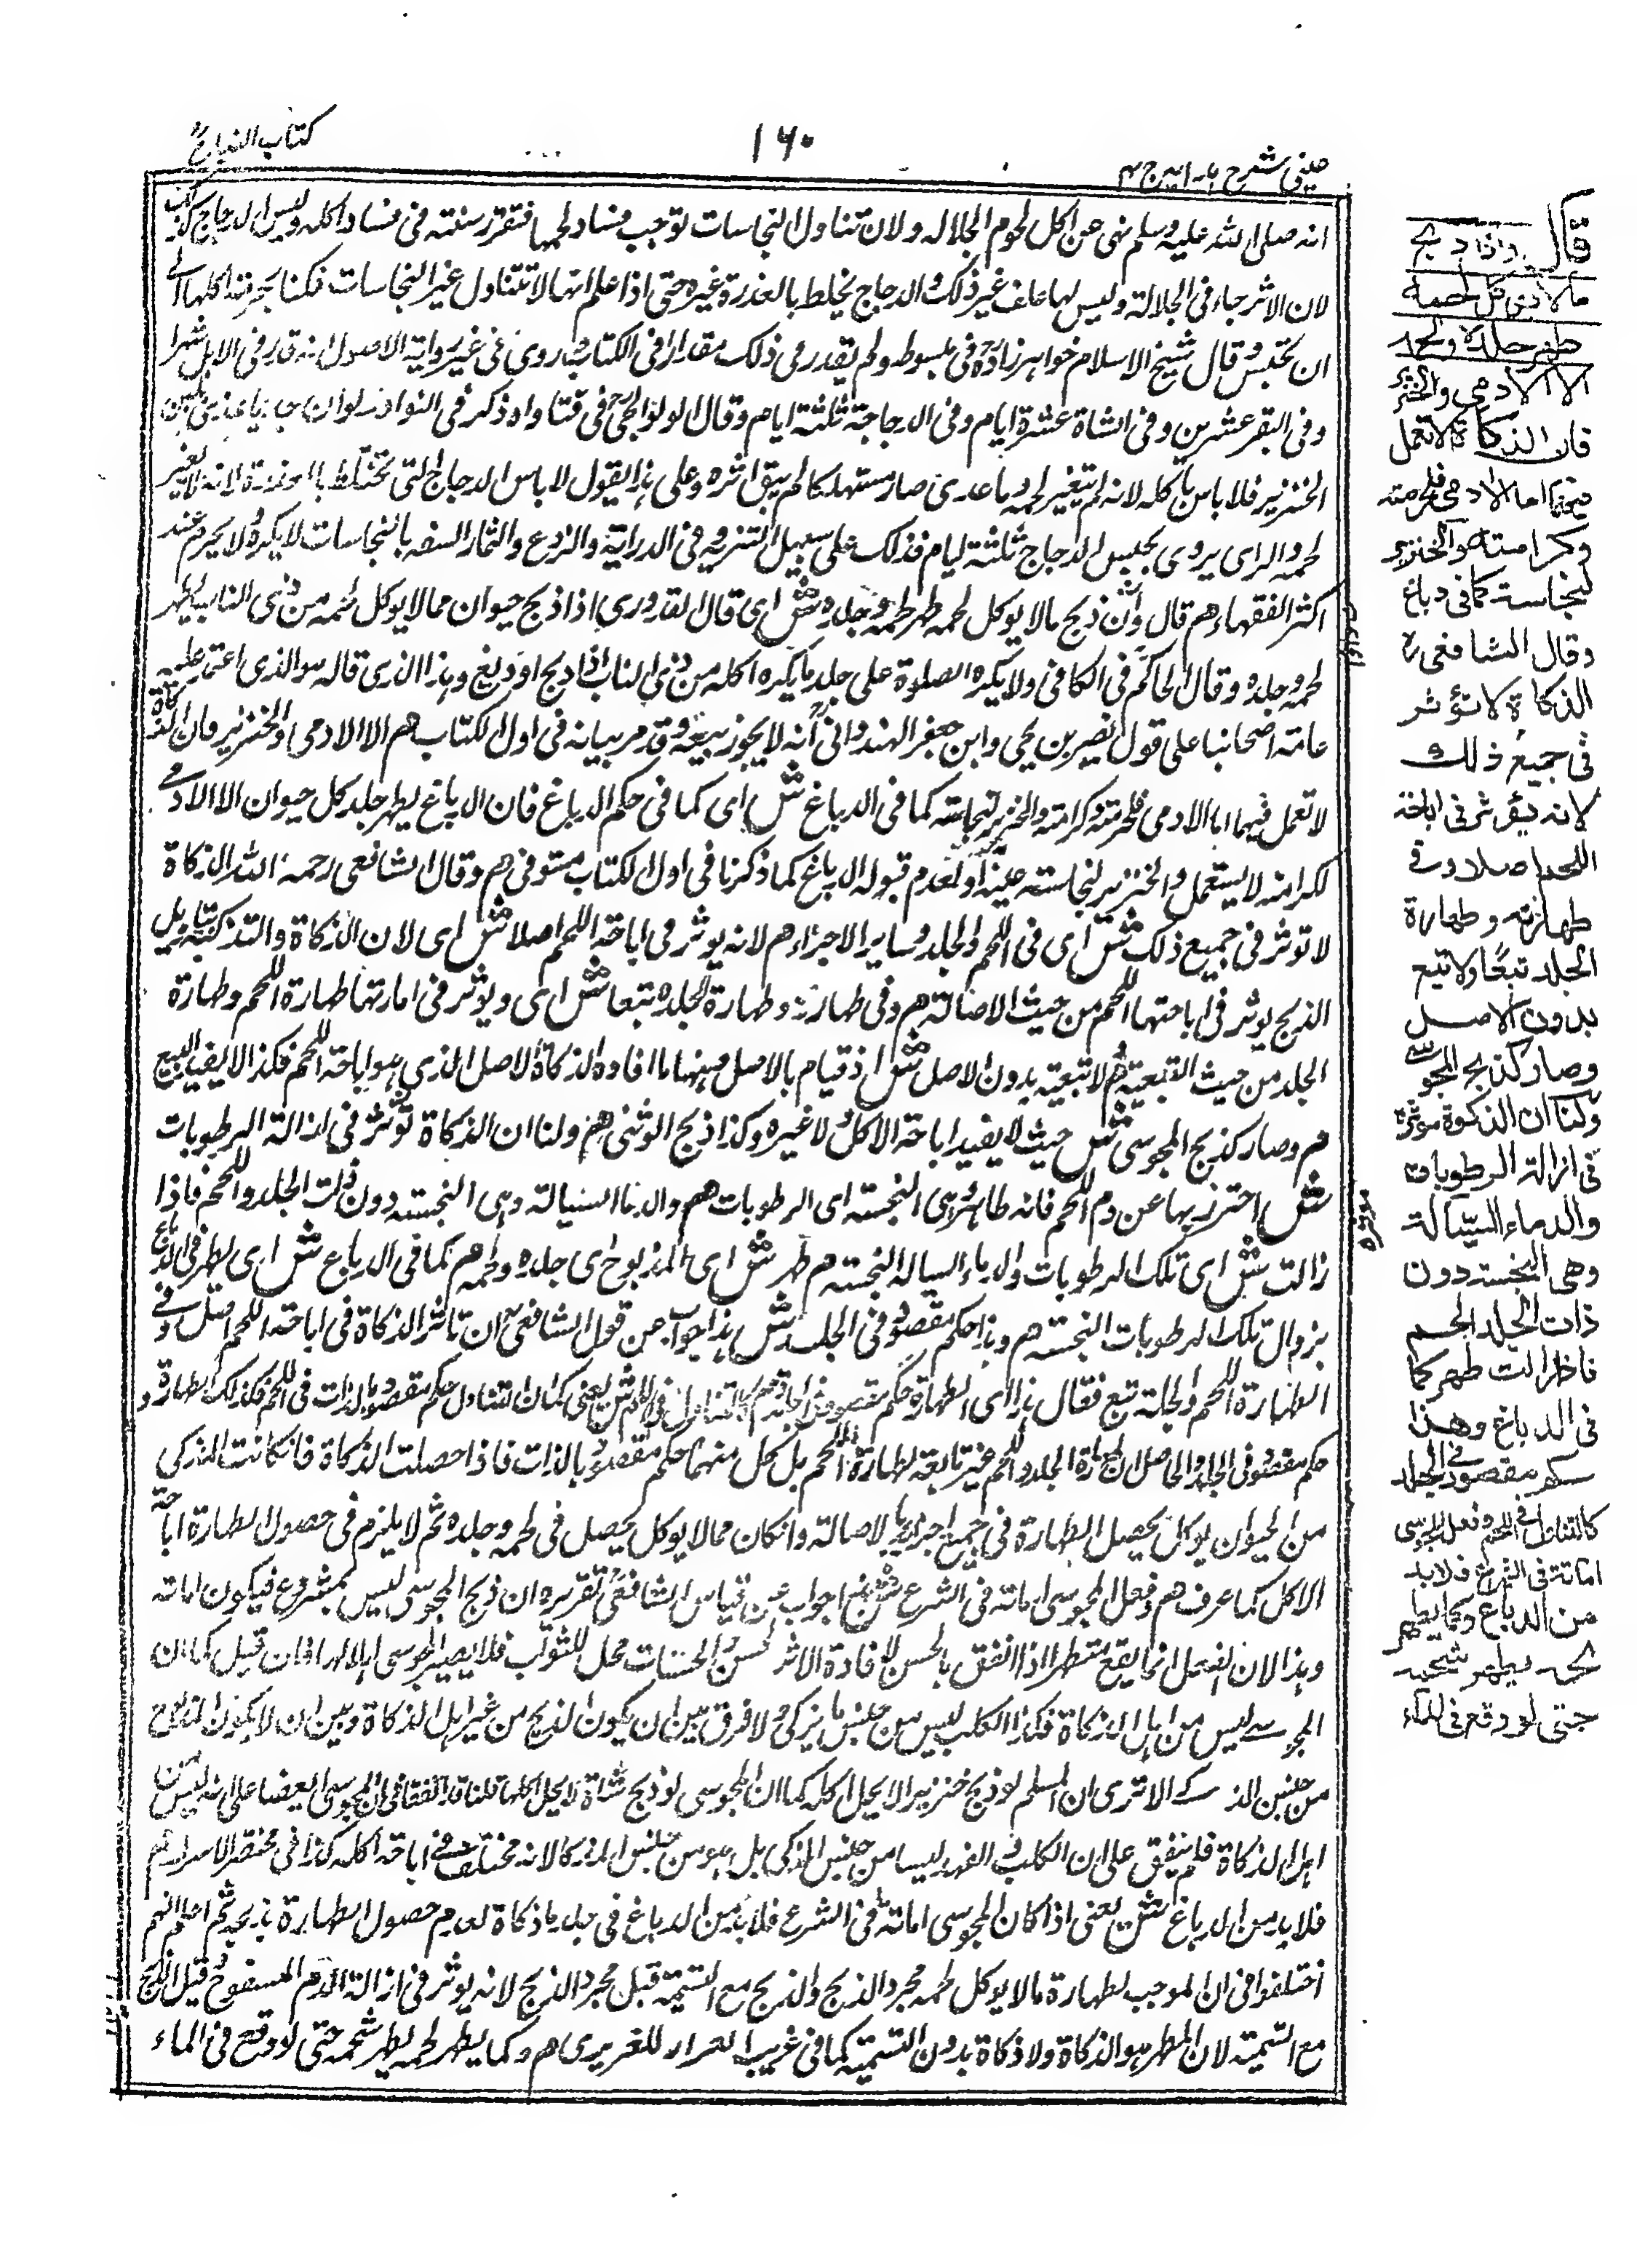 عينى شرح هدايه ج ٤
١٦٠
كتاب الذبائح
انه صلى الله عليه وسلم نهى عن اكل لحوم الجلاله ولان تناول النجاسات توجب فساد لحمها فتقرر سنته فى فساد اكله وليس الدجاج كذلك
لان الاثر جاء فى الجلالة وليس لها علف غير ذلك والدجاج يخلط بالعذرة غيره حتى اذا علم انها لا تتناول غير النجاسات فكنا اكلها الى
ان تحتبس وقال شيخ الاسلام خواهرزاده فى مبسوطه ولم يقدر فى ذلك مقدارا فى الكتاب وروى فى غير رواية الاصول انه قدر فى الابل شهرا
وفى البقر عشرين وفى الشاة عشرة ايام وفى الدجاجة ثلثة ايام وقال الولوالجى فى فتاواه ذكر فى النوادر لو ان جديا غذى بلبن
الخنزير فلا باس باكله لانه لم يتغير لحمه وما غذى صار مستهلكا لم يبق اثره وعلى هذا القول لا باس الدجاج التى تختلط بالعذرة لانه لا يتغير
لحمه والذى يروى بحبس الدجاج ثلثة ايام فذلك على سبيل التنزه وفى الدراية والزرع والثمار السقه بالنجاسات لا يكره ولا يحرم عند
اكثر الفقهاء هم قال وان ذبح مالا يوكل لحمه طهر لحمه وجلده ش اى قال القدورى اذا ذبح حيوان مما لا يوكل لحمه من ذى الناب يطهر
لحمه وجلده وقال الحاكم فى الكافى ولا يكره الصلوة على جلد ما يكره اكله من ذى الناب اذا ذبح او دبغ وهذا الذى قاله هو الذى اعتمد عليه
عامة اصحابنا على قول نصير بن يحيى وابن جعفر الهندوانى انه لا يجوز بيعه وقد مر بيانه فى اول الكتاب هم الا الادمى والخنزير فان الذكاة
لا تعمل فيهما اما الادمى فلحرمته وكرامته والخنزير لنجاسته كما فى الدباغ ش اى كما فى حكم الدباغ فان الدباغ يطهر جلد كل حيوان الا الادمى
لكرامته لا يستعمل والخنزير لنجاسته عينه او لعدم قبوله الدباغ كما ذكرنا فى اول الكتاب مستوفى هم وقال الشافعى رحمه الله الذكاة
لا توثر فى جميع ذلك ش اى فى اللحم والجلد وساير الاجزاء هم لانه يوثر فى اباحة اللحم اصلا ش اى لان الذكاة والتذكية
الذبح يوثر فى اباحتها اللحم من حيث الاصالة هم وفى طهارته وطهارة الجلد تبعا ش اى ويوثر فى طهارة اللحم وطهارة
الجلد من حيث التبعية هم ولا تبعية بدون الاصل ش اذ قيام بالاصل فههنا ما افاده الذكاة لاصل الذى هو اباحة اللحم فكذا لا يفيد التبع
هم وصار كذبح المجوسى ش حيث لا يفيد اباحة الاكل ولا غيره وكذا ذبح الوثنى هم ولنا ان الذكاة توثر فى ازالة الرطوبات
ش احترز بها عن دم اللحم فانه طاهر النجسته اى الرطوبات هم والدما السيالة وهى النجسته دون ذات الجلد واللحم فاذا
زالت ش اى تلك الرطوبات والدماء السيالة النجسته هم طهر ش اى المذبوح اى جلده ولحمه هم كما فى الدباغ ش اى يطهر فى الدباغ
بزوال تلك الرطوبات النجسته هم وهذا حكم مقصود فى الجلد ش هذا جواب عن قول الشافعى ان تاثر الذكاة فى اباحة اللحم اصل وفى
الطهارة اللحم والجلد تبع فقال هذا اى الطهارة حكم مقصود فى الجلد هم كالتناول فى اللحم ش يعنى كما ان التناول حكم مقصود بالذات فى اللحم فكذلك الطهارة
حكم مقصود فى الجلد والحاصل ان طهارة الجلد واللحم غير تابعة لطهارة اللحم بل كل منهما حكم مقصود بالذات فاذا حصلت الذكاة فان كانت المذكى
من الحيوان يوكل يحصل الطهارة فى جميع اجزائه بالاصالة وان كان مما لا يوكل يحصل فى لحمه وجلده ثم لا يلزم فى حصول الطهارة اباحة
الاكل كما عرف هم وفعل المجوسى اماتة فى الشرع ش هذا جواب عن قياس الشافعى تقريره ان ذبح المجوسى ليس بمشروع فيكون اماتة
وهذا لان الفعل انما يقع مطهرا اذا اتفق بالحسن لافادة الاثر الحسنات محل للثواب فلا يصير المجوسى اهلا لها فان قيل كما ان
المجوسى ليس من اهل الذكاة فكذا الكلب ليس من جنس ما يزكى ولا فرق بين ان يكون الذبح من غير اهل الذكاة وبين ان لا يكون المذبوح
من جنس المذكى الا ترى ان المسلم لو ذبح خنزيرا لا يحل اكله كما ان المجوسى لو ذبح شاة لا يحل اكلها قلنا اتفقا فى ان المجوسى ايضا على انه ليس من
اهل الذكاة فلم يتفق على ان الكلب والفهد ليسا من جنس المذكى بل هو من جنس المذكا لانه مختلف فى اباحة اكله كذا فى مختصر الاسرار هم
فلا بد من الدباغ ش يعنى اذا كان المجوسى اماتة فى الشرع فلابد من الدباغ فى جلد ما ذكاة لعدم حصول الطهارة بذبحه ثم اعلم انهم
اختلفوا فى ان الموجب لطهارة مالا يوكل لحمه مجرد الذبح والذبح مع التسمية قيل مجرد الذبح لانه يوثر فى ازالة الدم المسفوح وقيل الذبح
مع التسمية لان المطهر هو الذكاة ولا ذكاة بدون التسمية كما فى غريب هم وكما يطهر لحمه يطهر شحمه حتى لو وقع فى الماء
قال واذا ذبح
مالا يوكل لحمه
طهر جلده ولحمه
الا الادمى والخنزير
فان الذكاة لا تعمل
فيهما اما الادمى فلحرمته
وكرامته والخنزير
لنجاسته كما فى دباغ
وقال الشافعى ره
الذكاة لا تؤثر
فى جميع ذلك
لانه يؤثر فى اباحة
اللحم اصلا وفى
طهارته وطهارة
الجلد تبعًا ولا تبع
بدون الاصل
وصار كذبح المجوسى
ولنا ان الذكوة مؤثرة
فى ازالة الرطوبات
والدماء السيّالة
وهى النجسته دون
ذات الجلد اللحم
فاذا زالت طهر كما
فى الدباغ وهذا
حكم مقصود فى الجلد
كالتناول فى اللحم وفعل المجوسى
اماتة فى الشرع فلابد
من الدباغ وكما يطهر
لحمه يطهر شحمه
حتى لو وقع فى الماء